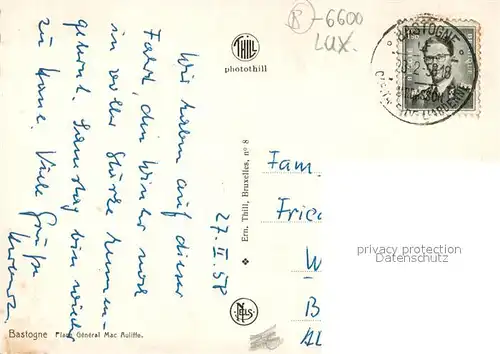 (R) -6600
LUX.
THILL
photothill
BASTOGNE
Wir haben auf dieser
Fahrt den Winter noch
in voller Stärke kennen-
gelernt. Samstag bin wieder
zu Hause. Viele Grüße
27. II. 58
Ern. Thill, Bruxelles, n° 8
NELS
Fam.
Fried
W
B
Bastogne Place Général Mac Auliffe.
privacy protection
AKPOOL.DE